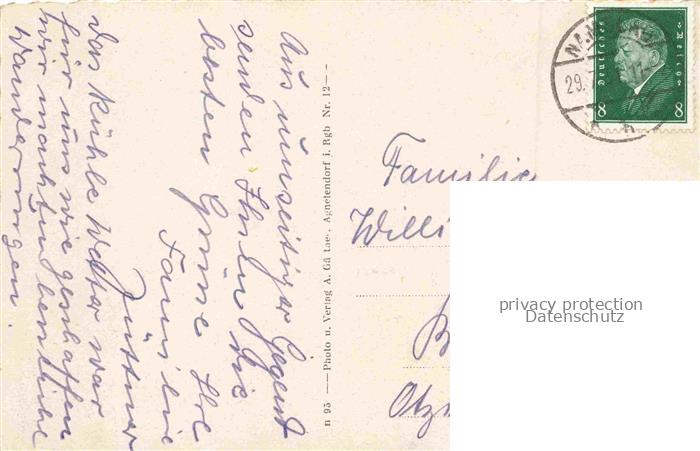 Aus unseitiger Gegend
senden Ihnen die
besten Grüsse Ihre
Familie
Jüttner
das kühle Wetter war
für uns wie geschaffen
wir machten herrliche
Wanderungen.
n 95 — Photo u. Verlag A. Gärtner, Agnetendorf i. Rgb Nr. 12 —
Deutsches Reich
8 8
29.
Familie
Willi
privacy protection
Datenschutz